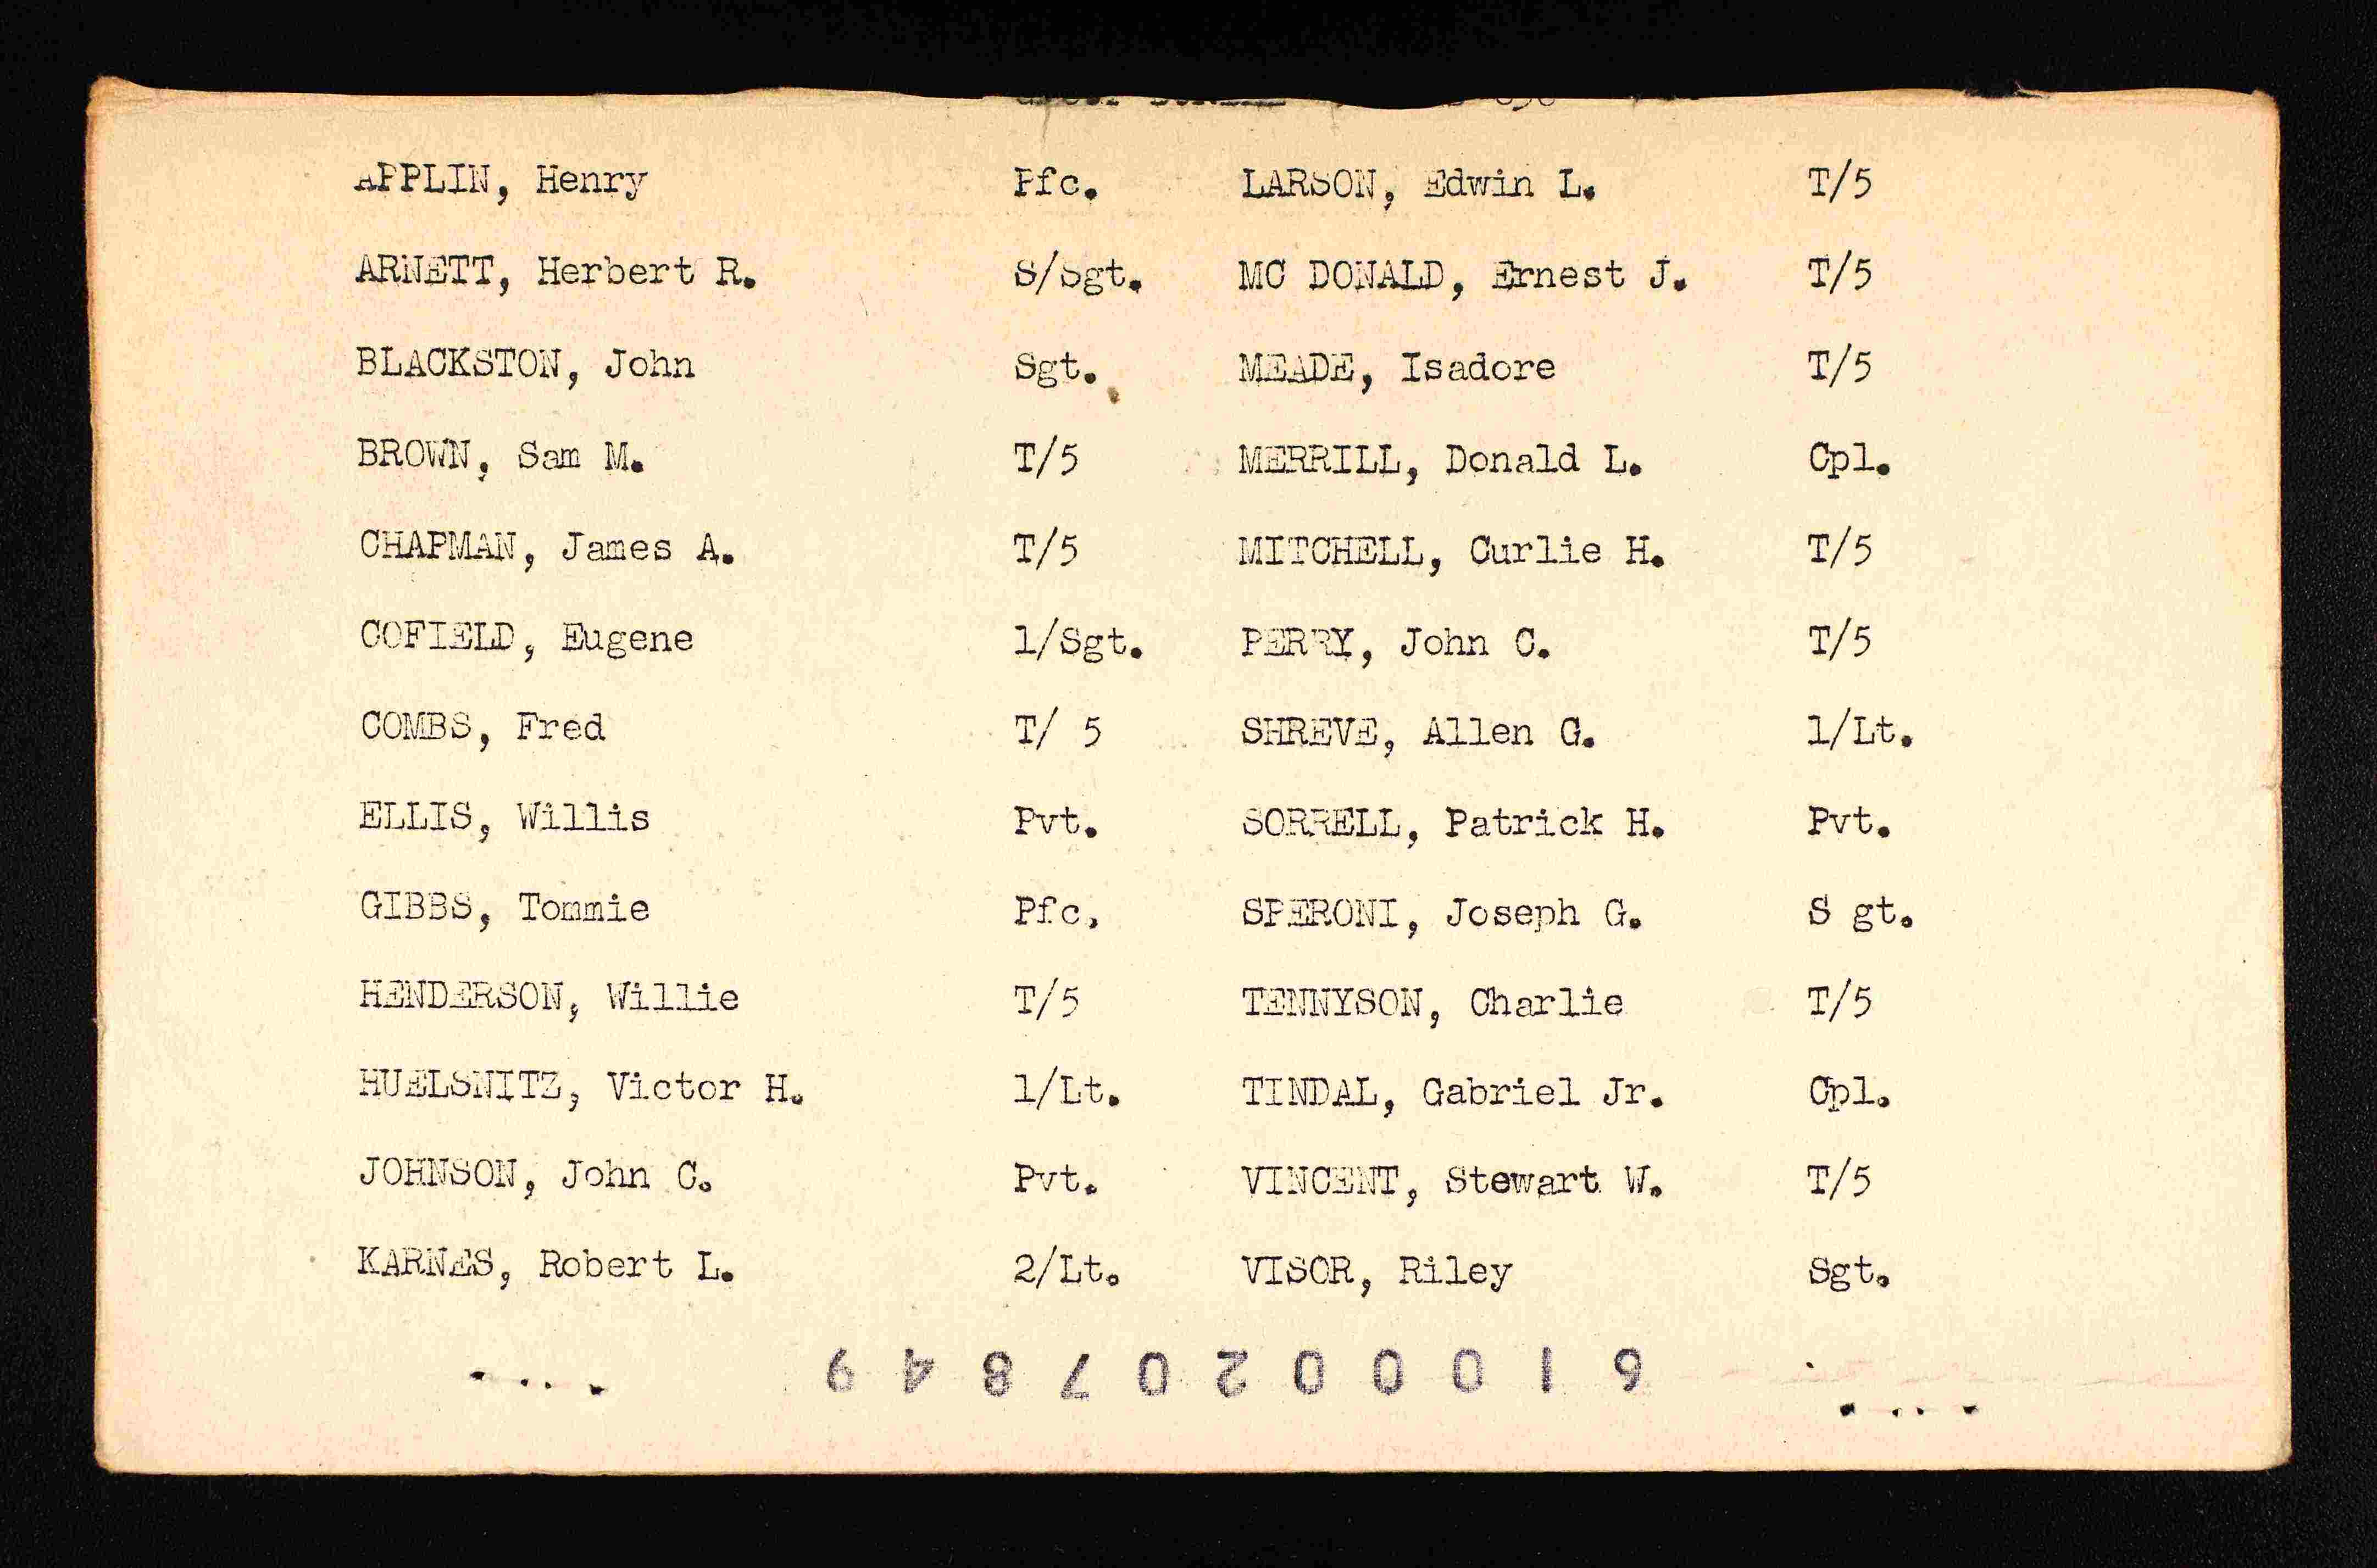 APPLIN, Henry Pfc. LARSON, Edwin L. T/5
ARNETT, Herbert R. S/Sgt. MC DONALD, Ernest J. T/5
BLACKSTON, John Sgt. MEADE, Isadore T/5
BROWN, Sam M. T/5 MERRILL, Donald L. Cpl.
CHAPMAN, James A. T/5 MITCHELL, Curlie H. T/5
COFIELD, Eugene 1/Sgt. PERRY, John C. T/5
COMBS, Fred T/ 5 SHREVE, Allen G. 1/Lt.
ELLIS, Willis Pvt. SORRELL, Patrick H. Pvt.
GIBBS, Tommie Pfc, SPERONI, Joseph G. S gt.
HENDERSON, Willie T/5 TENNYSON, Charlie T/5
HUELSNITZ, Victor H. 1/Lt. TINDAL, Gabriel Jr. Cpl.
JOHNSON, John C. Pvt. VINCENT, Stewart W. T/5
KARNES, Robert L. 2/Lt. VISOR, Riley Sgt.
61000207849